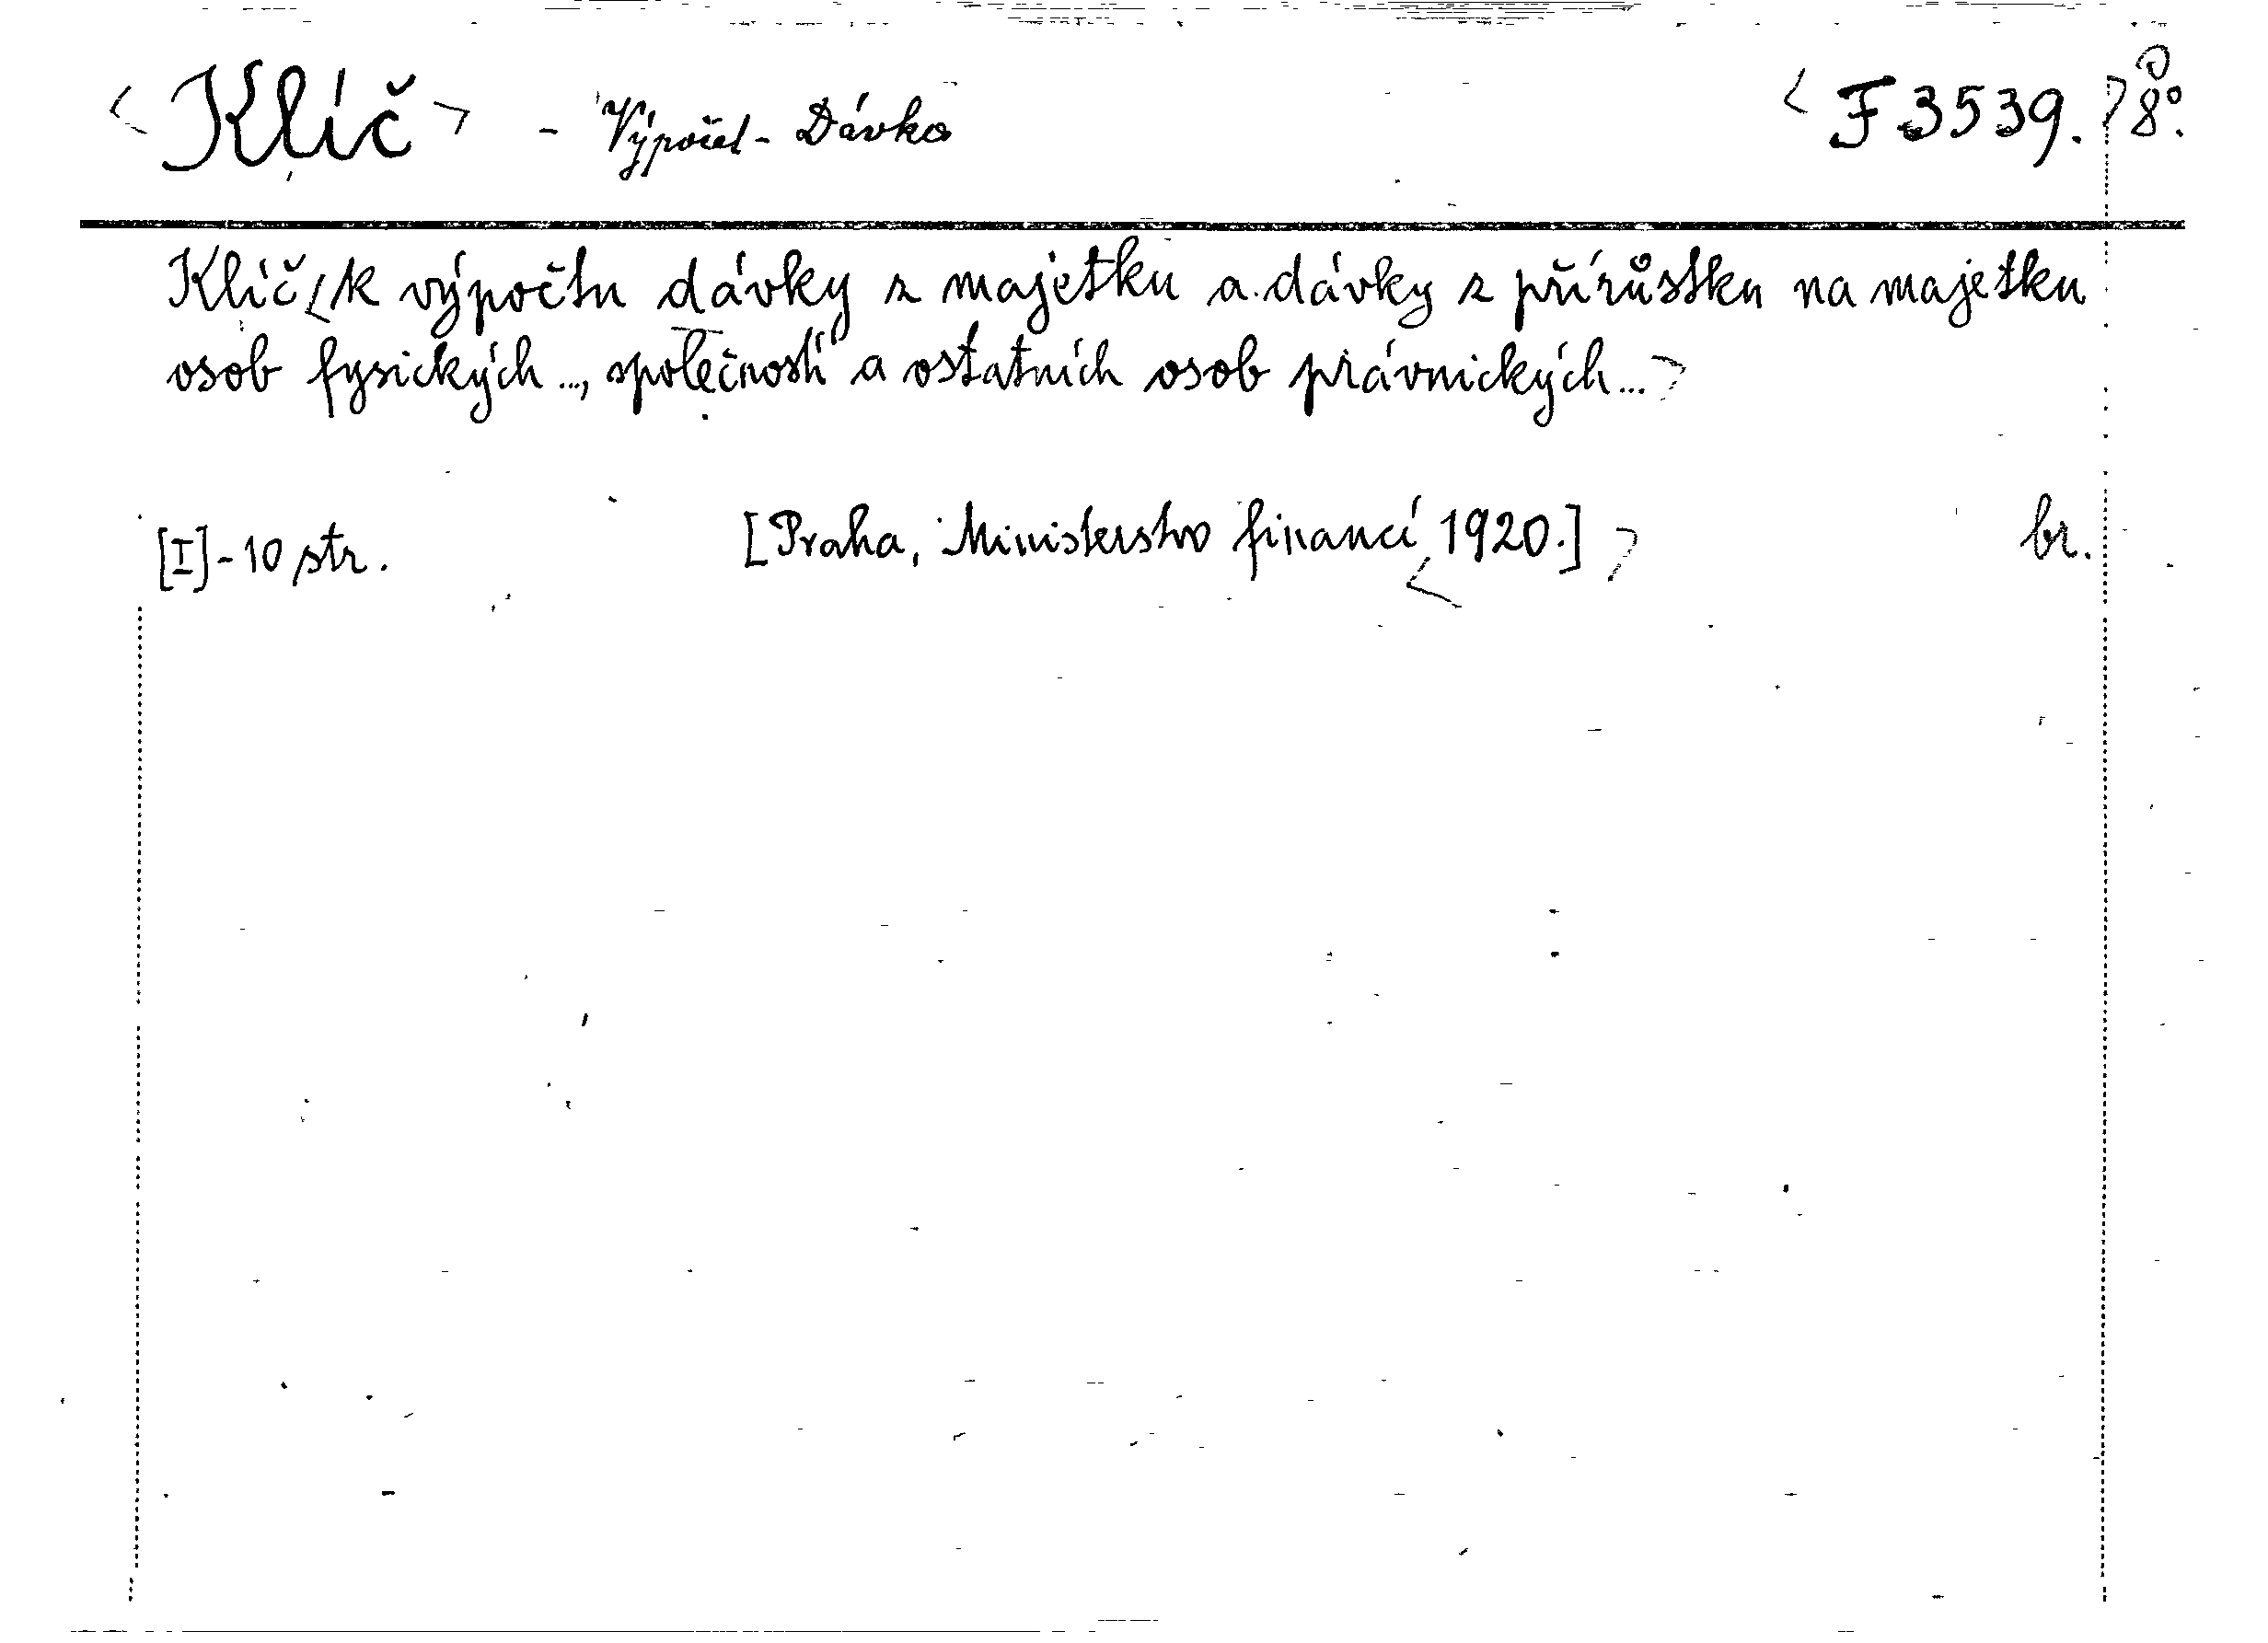 <Klíč> - Výpočet - Dávka <F 3539.> 8°.
Klíč <k výpočtu dávky z majetku a dávky z přírůstku na majetku
osob fysických ..., společností a ostatních osob právnických ...>
[I] - 10 str. [Praha, Ministerstvo financí, <1920.]> br.